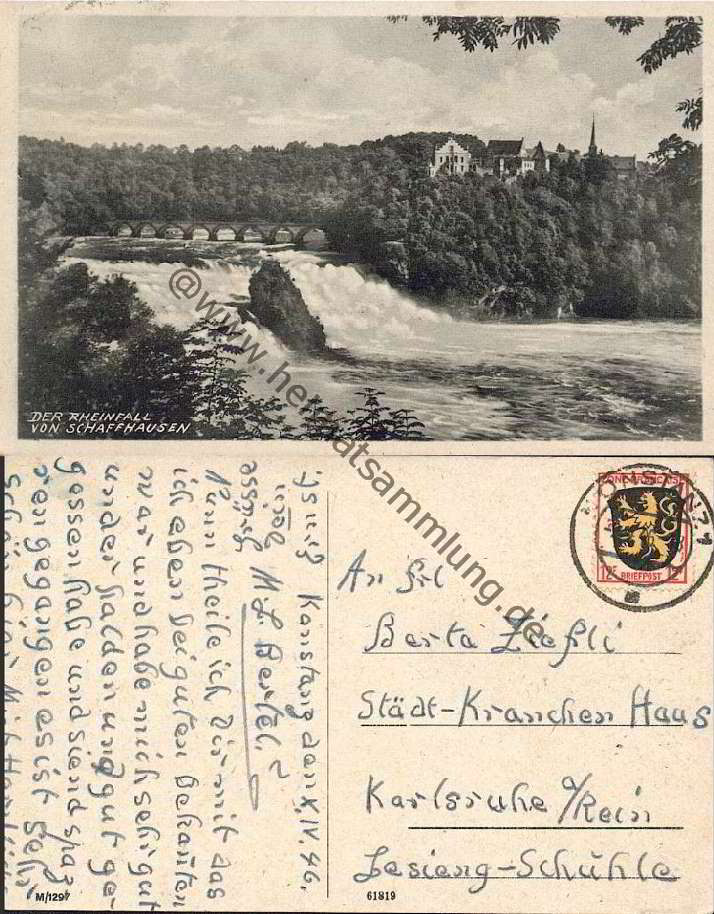 DER RHEINFALL
VON SCHAFFHAUSEN
@www.heimatsammlung.de
Konstanz den XIV. 46.
M. L. Bertel.
Nun theile ich Dir mit das
ich eben bei guten bekanten
war und habe mich sehr gut
underhalden und gut ge-
gossen habe und siend spaz
ren gegangen es ist sehr
schön hier
M/1297
61819
ZONE FRANÇAISE
12 F 12 F
BRIEFPOST
KONSTANZ 1
An frl
Berta Zießli
Städt-Kranchen Haus
Karlsruhe a/Rein
Lesieng-Schühle